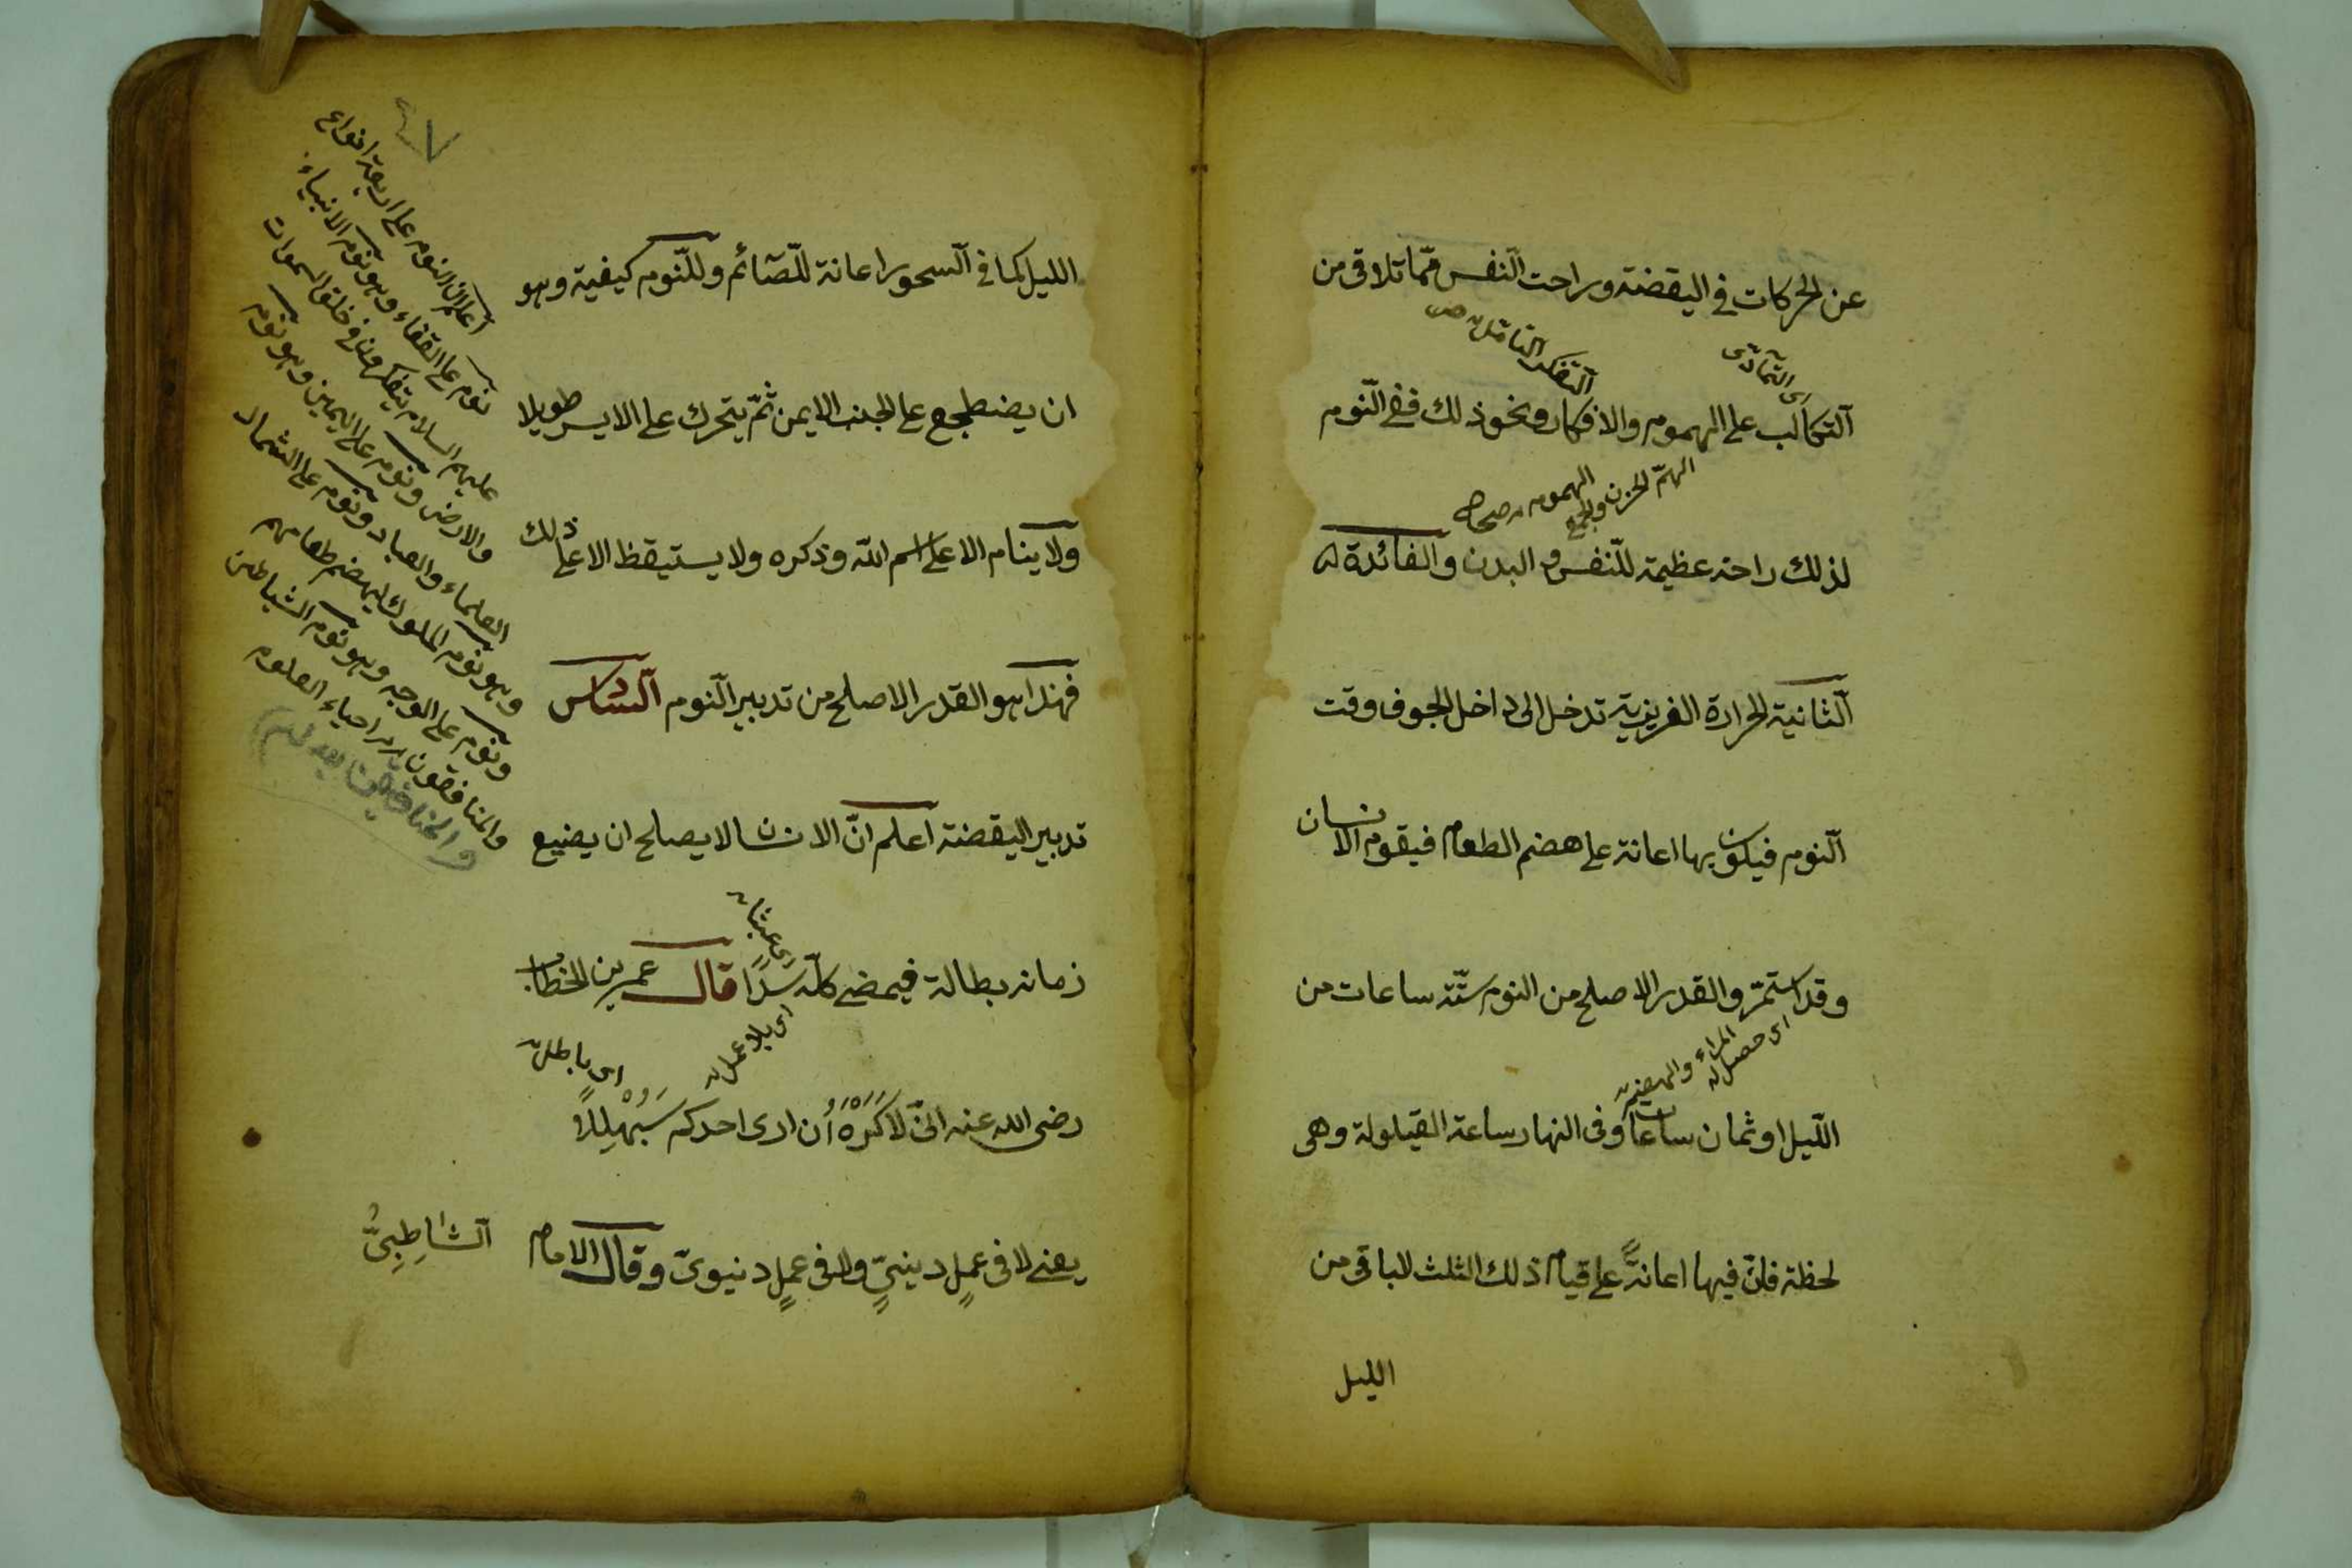 عن الحركات في اليقضة وراحت النفس ممّا تلاقي من
اى التمادى
التفكر التامل ص
التكالب على الهموم والافكار ونحوذلك ففي النّوم
الهمّ الحزن والجمع
الهموم صحاح
لذلك راحة عظيمة للنّفس والبدن والفائدة
الثانية الحرارة الغريزية تدخل الى داخل الجوف وقت
النوم فيكون بها اعانة على هضم الطعام فيقوم الانسان
وقد استمرّ والقدر الاصلح من النوم ستّة ساعات من
اى حصل له
المراء والهضم
اللّيل او ثمان ساعات وفى النهار ساعة القيلولة وهى
لحظة فانّ فيها اعانةً على قيام ذلك الثلث الباقى من
الليل
الليل كما في السحور اعانة للصّائم وللنّوم كيفية وهو
ان يضطجع على الجنب الايمن ثمّ يتحرك على الايسر طويلا
ولا ينام الا على اسم الله وذكره ولا يستيقظ الا على ذلك
فهذا هو القدر الاصلح من تدبير النوم السادس
تدبير اليقضة اعلم انّ الانسان لا يصلح ان يضيع
اى عبثا
زمانه بطالة فيمضى كلّه سدًا قال عمر بن الخطاب
اى بلا عمل
اى باطل
رضى الله عنه انّى لَاَكْرَهُ أن ارى احدكم سَبَهْلِلاً
يعنى لا فى عملٍ دينىٍّ ولا فى عملٍ دنيوىّ وقال الامام الشاطِبِىُّ
٤٧
اعلم ان النوم على اربعة انواع
نوم على القفاء وهو نوم الانبياء
عليهم السلام يتفكرون في خلق السموات
والارض ونوم على اليمين وهو نوم
العلماء والعباد ونوم على الشمال
وهو نوم الملوك ليهضم طعامهم
ونوم على الوجه وهو نوم الشياطين
والمنافقون احياء العلوم
والمنافقين